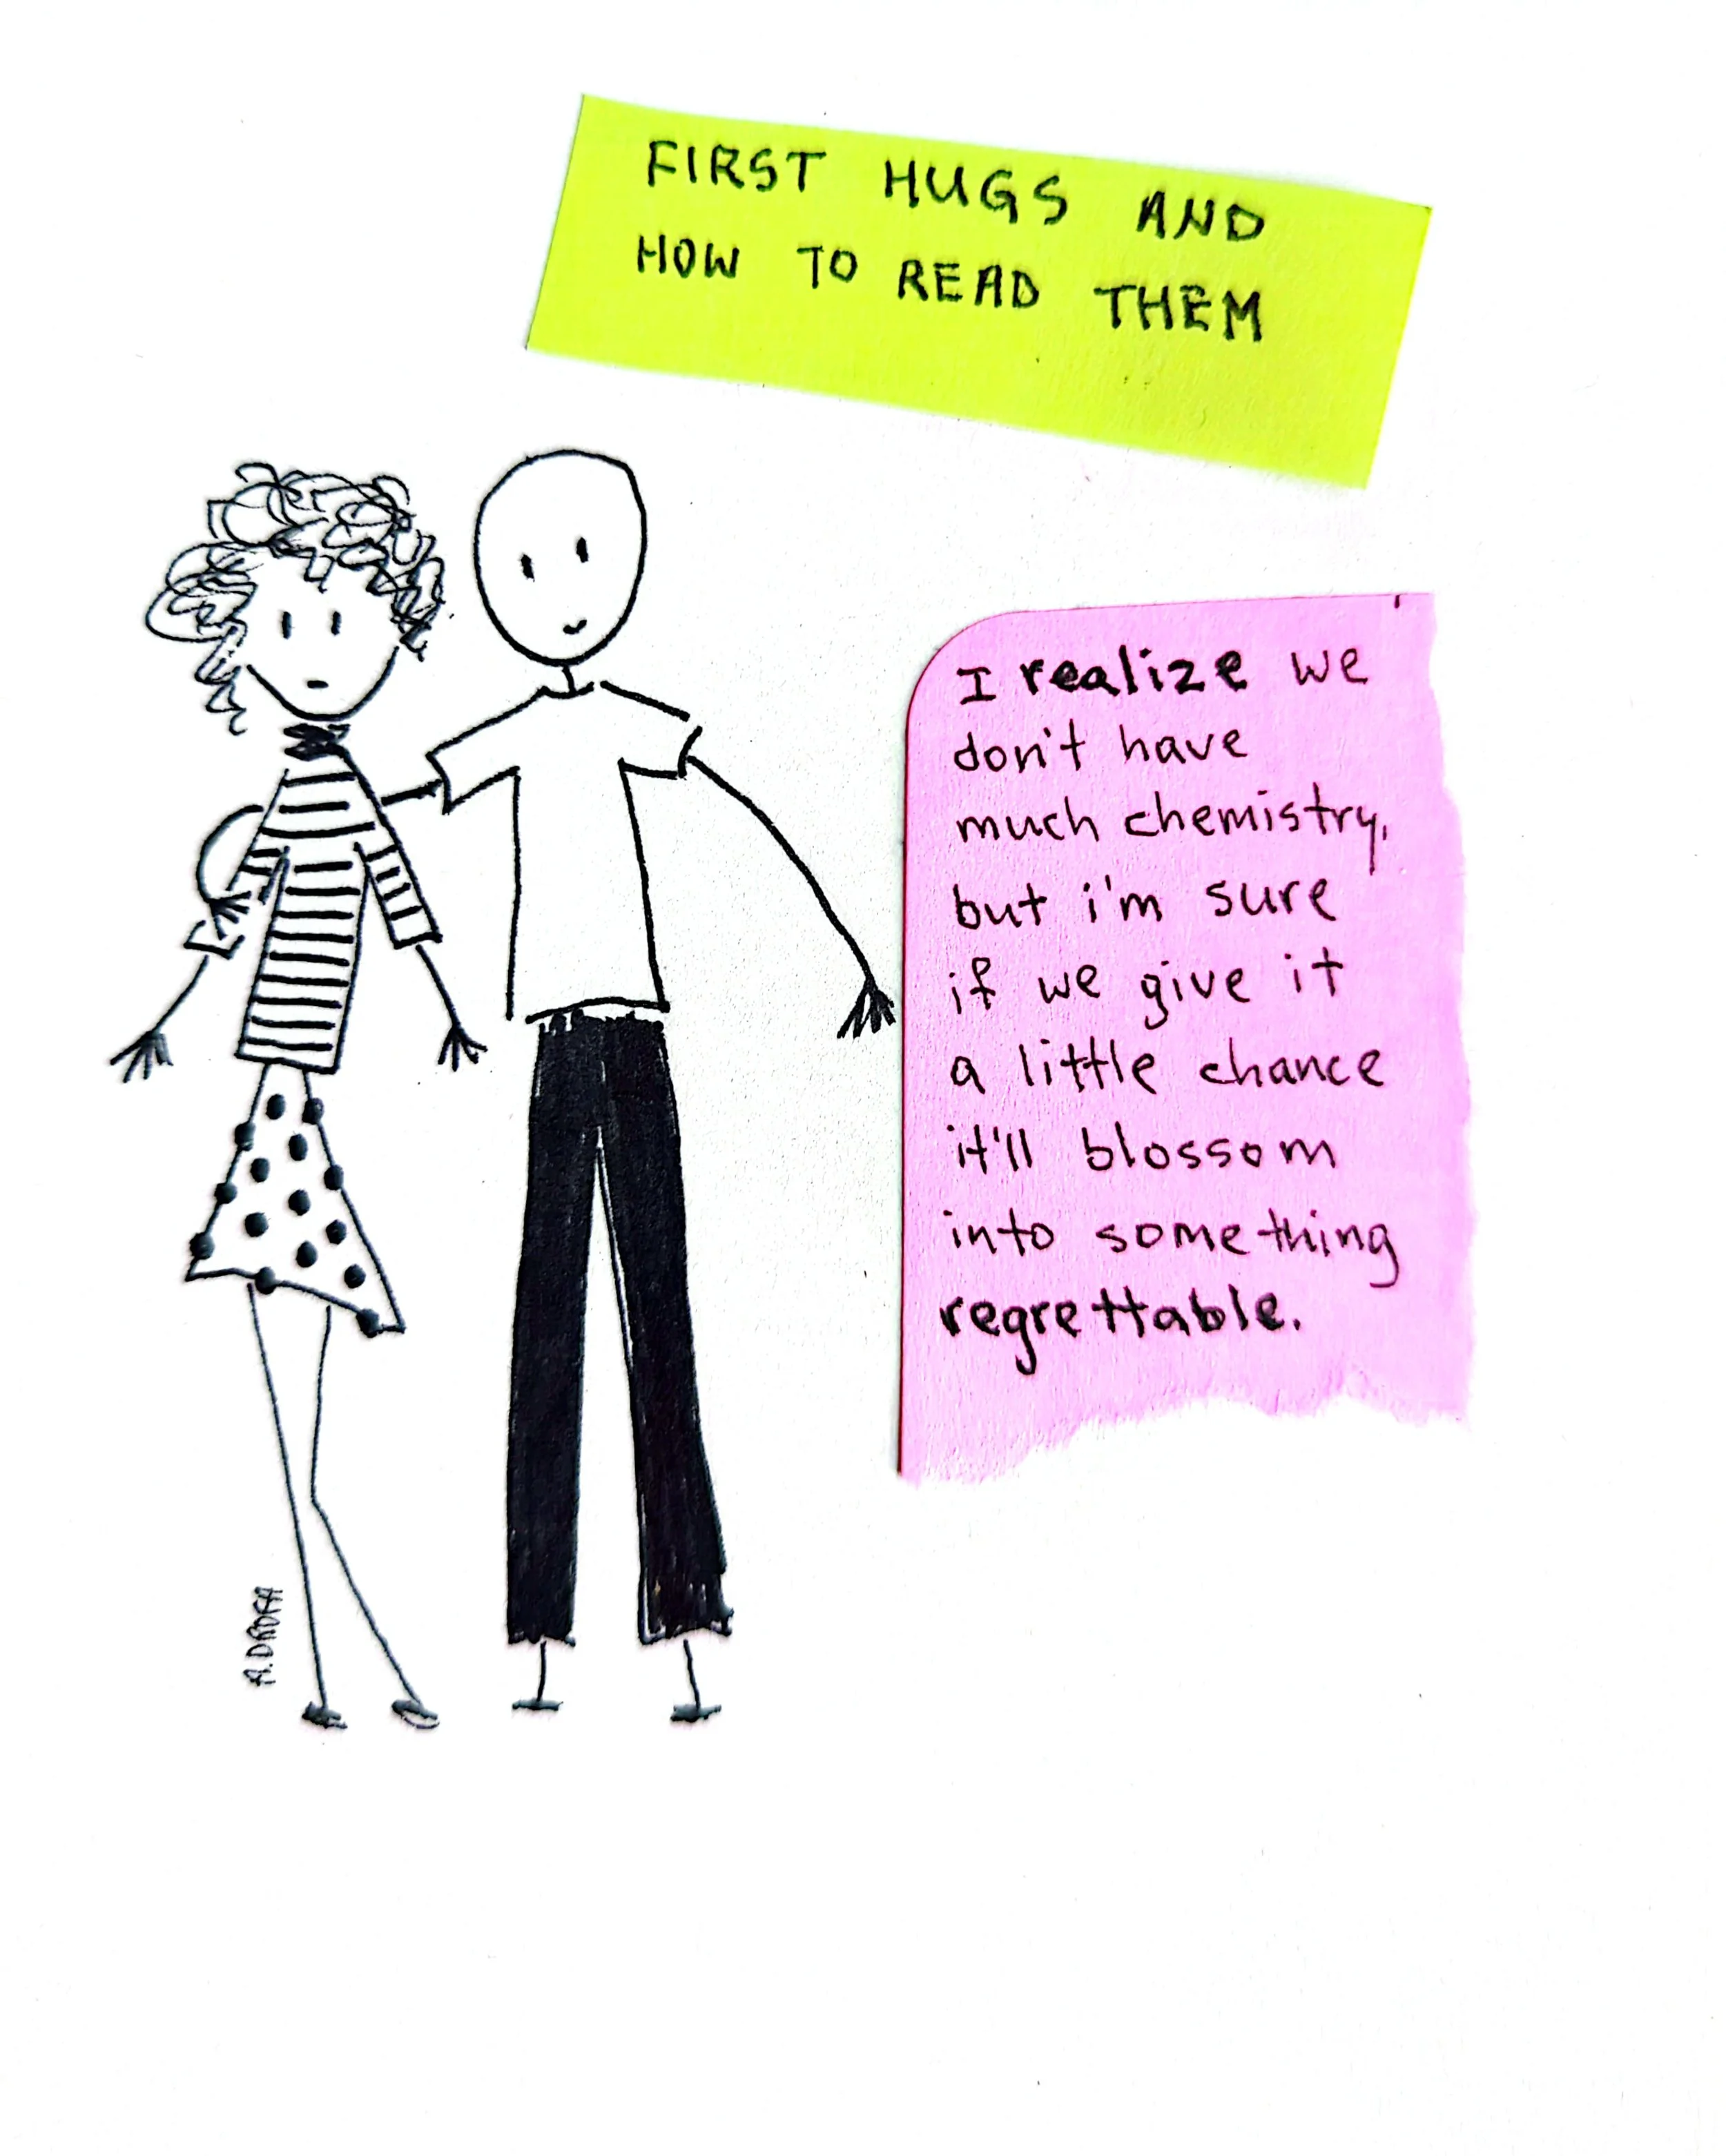 FIRST HUGS AND
HOW TO READ THEM
I realize we
don't have
much chemistry,
but i'm sure
if we give it
a little chance
it'll blossom
into something
regrettable.